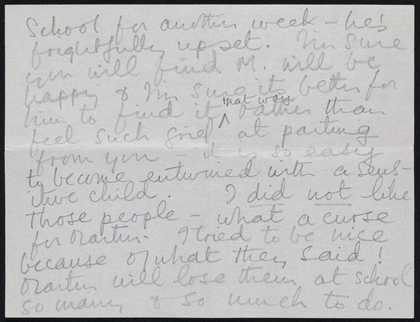 School for another week – he's
frightfully upset. I'm sure
you will find M. will be
happy & I'm sure its better for
him to find it that way rather than
feel such grief at parting
from you – it is so easy
to become entwined with a sens-
itive child. I did not like
those people – what a curse
for Martin. I tried to be nice
because of what they said!
Martin will lose them at school
so many & so much to do.